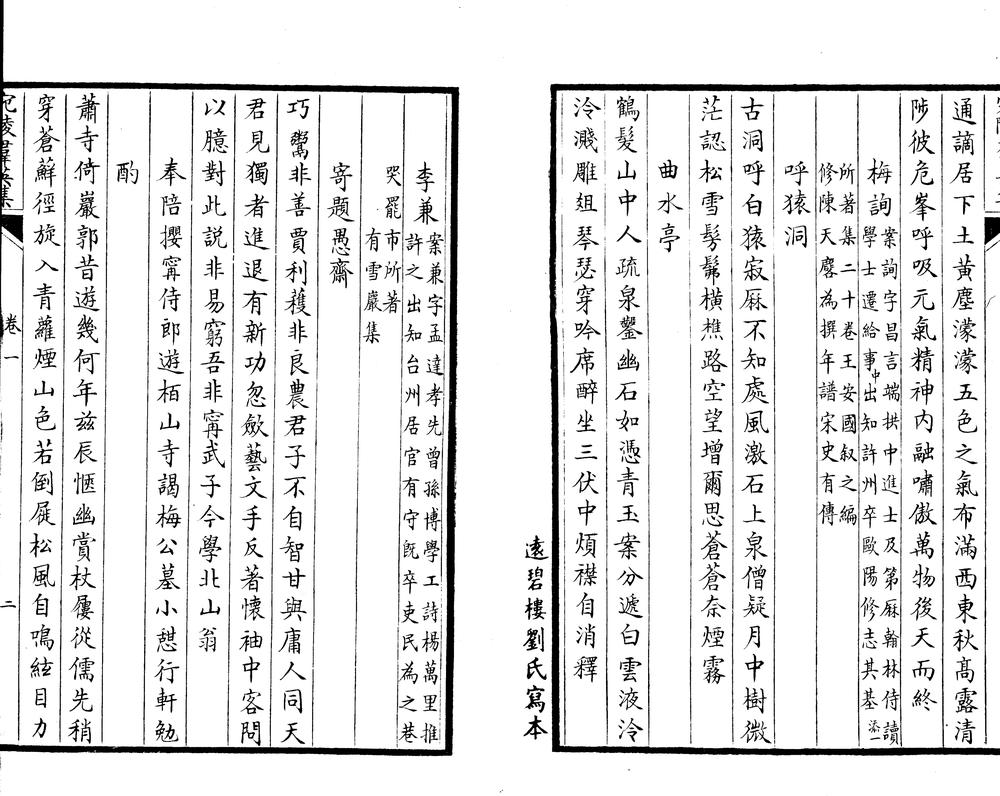 通謫居下土黄塵濛濛五色之氣布滿西東秋髙露清
陟彼危峯呼吸元氣精神内融嘯傲萬物後天而終
梅詢案詢字昌言端拱中進士及第厤翰林侍讀
學士遷給事中出知許州卒歐陽修志其基
所著集二十卷王安國叙之編
修陳天麐為撰年譜宋史有傳
呼猿洞
古洞呼白猿寂厤不知處風激石上泉僧疑月中樹微
茫認松雪髣髴橫樵路空望增爾思蒼蒼奈煙霧
曲水亭
鶴髮山中人疏泉鑿幽石如憑青玉案分遞白雲液泠
泠濺雕俎琴瑟穿吟席醉坐三伏中煩襟自消釋
遠碧樓劉氏寫本
李兼案兼字孟達孝先曾孫博學工詩楊萬里推
許之出知台州居官有守旣卒吏民為之巷
哭罷市所著
有雪巖集
寄題愚齋
巧鬻非善賈利穫非良農君子不自智甘與庸人同天
君見獨者進退有新功忽斂藝文手反著懷袖中客問
以臆對此説非易窮吾非甯武子今學北山翁
奉陪攖甯侍郎遊栢山寺謁梅公墓小憇行軒勉
酌
蕭寺倚巖郭昔遊幾何年兹辰愜幽賞杖屨從儒先稍
穿蒼蘚徑旋入青蘿煙山色若倒屣松風自鳴絃目力
宛陵羣英集
卷一
二